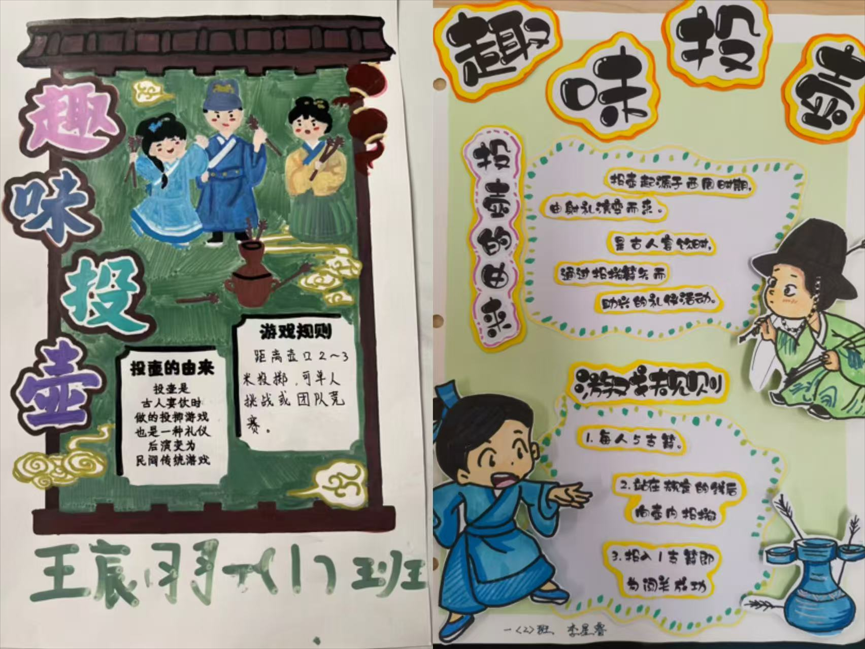 趣
味
投
壶
投壶的由来
投壶是
古人宴饮时
做的投掷游戏
也是一种礼仪
后演变为
民间传统游戏
游戏规则
距离壶口2~3
米投掷,可单人
挑战或团队竞
赛。
王宸羽 一(1)班
趣味投壶
投壶的由来
投壶起源于西周时期,
由射礼演变而来。
是古人宴饮时,
通过投掷箭矢而
助兴的礼仪活动。
游戏规则
1.每人5支箭。
2.站在指定的线后
向壶内投掷
3.投入1支箭即
为闯关成功
一(2)班、李星睿